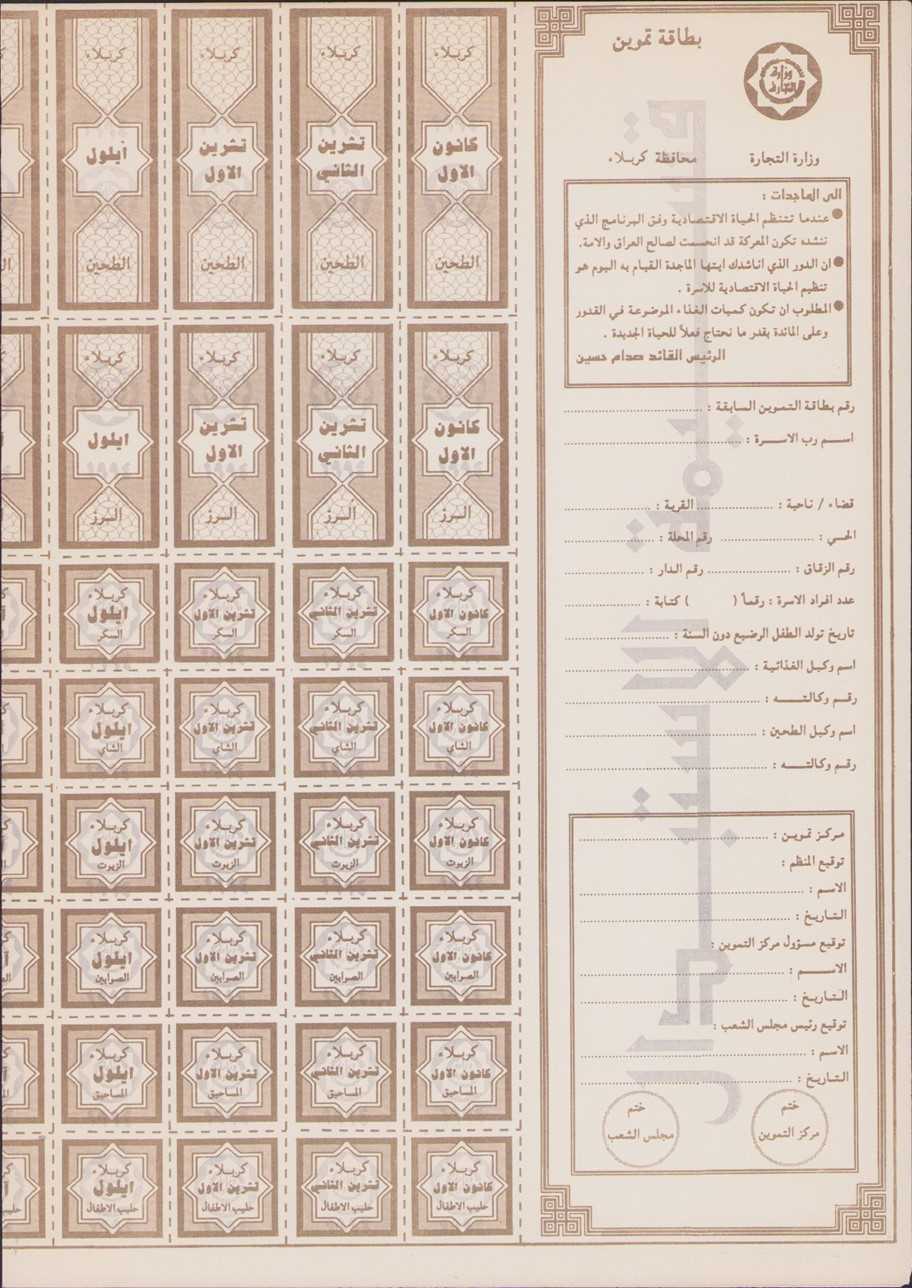 بطاقة تموين
وزارة التجارة
وزارة التجارة
محافظة كربلاء
الى الماجدات :
● عندما تنتظم الحياة الاقتصادية وفق البرنامج الذي
ننشده تكون المعركة قد انحسمت لصالح العراق والامة.
● ان الدور الذي اناشدك ايتها الماجدة القيام به اليوم هو
تنظيم الحياة الاقتصادية للاسرة .
● المطلوب ان تكون كميات الغذاء الموضوعة في القدور
وعلى المائدة بقدر ما نحتاج فعلاً للحياة الجديدة .
الرئيس القائد صدام حسين
رقم بطاقة التموين السابقة :
اسم رب الاسرة :
قضاء / ناحية : القرية :
الحي : رقم المحلة :
رقم الزقاق : رقم الدار :
عدد افراد الاسرة : رقماً ( ) كتابة :
تاريخ تولد الطفل الرضيع دون السنة :
اسم وكيل الغذائية :
رقم وكالته :
اسم وكيل الطحين :
رقم وكالته :
مركز تموين :
توقيع المنظم :
الاسم :
التاريخ :
توقيع مسؤول مركز التموين :
الاسم :
التاريخ :
توقيع رئيس مجلس الشعب :
الاسم :
التاريخ :
ختم
مركز التموين
ختم
مجلس الشعب
قسيمة الاستبدال
كربلاء
كانون
الاول
الطحين
كربلاء
تشرين
الثاني
الطحين
كربلاء
تشرين
الاول
الطحين
كربلاء
أيلول
الطحين
كربلاء
كانون
الاول
الرز
كربلاء
تشرين
الثاني
الرز
كربلاء
تشرين
الاول
الرز
كربلاء
ايلول
الرز
كربلاء
كانون الاول
السكر
كربلاء
تشرين الثاني
السكر
كربلاء
تشرين الاول
السكر
كربلاء
ايلول
السكر
كربلاء
كانون الاول
الشاي
كربلاء
تشرين الثاني
الشاي
كربلاء
تشرين الاول
الشاي
كربلاء
ايلول
الشاي
كربلاء
كانون الاول
الزيوت
كربلاء
تشرين الثاني
الزيوت
كربلاء
تشرين الاول
الزيوت
كربلاء
ايلول
الزيوت
كربلاء
كانون الاول
الصوابين
كربلاء
تشرين الثاني
الصوابين
كربلاء
تشرين الاول
الصوابين
كربلاء
ايلول
الصوابين
كربلاء
كانون الاول
المساحيق
كربلاء
تشرين الثاني
المساحيق
كربلاء
تشرين الاول
المساحيق
كربلاء
ايلول
المساحيق
كربلاء
كانون الاول
حليب الاطفال
كربلاء
تشرين الثاني
حليب الاطفال
كربلاء
تشرين الاول
حليب الاطفال
كربلاء
ايلول
حليب الاطفال